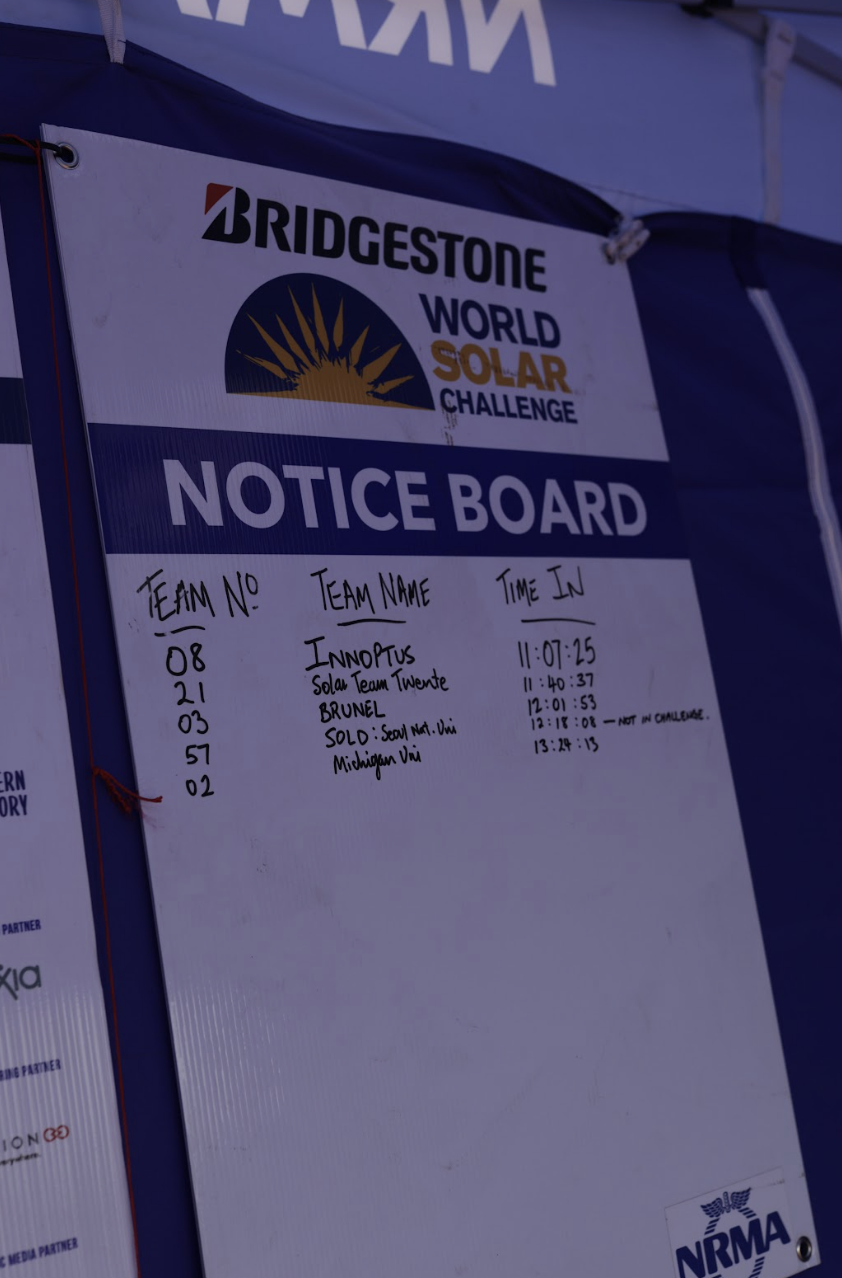 BRIDGESTONE
WORLD
SOLAR
CHALLENGE
NOTICE BOARD
TEAM Nº TEAM NAME TIME IN
08 INNOPTUS 11:07:25
21 Solar Team Twente 11:40:37
03 BRUNEL 12:01:53
57 SOLD: Seoul Nat. Uni 12:18:08 — NOT IN CHALLENGE.
02 Michigan Uni 13:24:13
ERN
ORY
PARTNER
xia
RING PARTNER
ION
C MEDIA PARTNER
NRMA